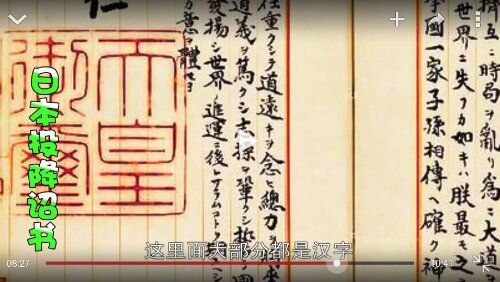 擠互ニ時局ヲ亂リ爲ニ大道
世界ニ失フカ如キハ朕最モ之
擧國一家子孫相傳ヘ確ク神
任重クシテ道遠キヲ念ヒ總力ヲ將來
道義ヲ篤クシ志操ヲ鞏クシ誓
發揚シ世界ノ進運ニ後レサラムコトヲ
カ意ヲ體セヨ
仁
天皇
御璽
日本投降诏书
这里面大部分都是汉字
08:27
10:41